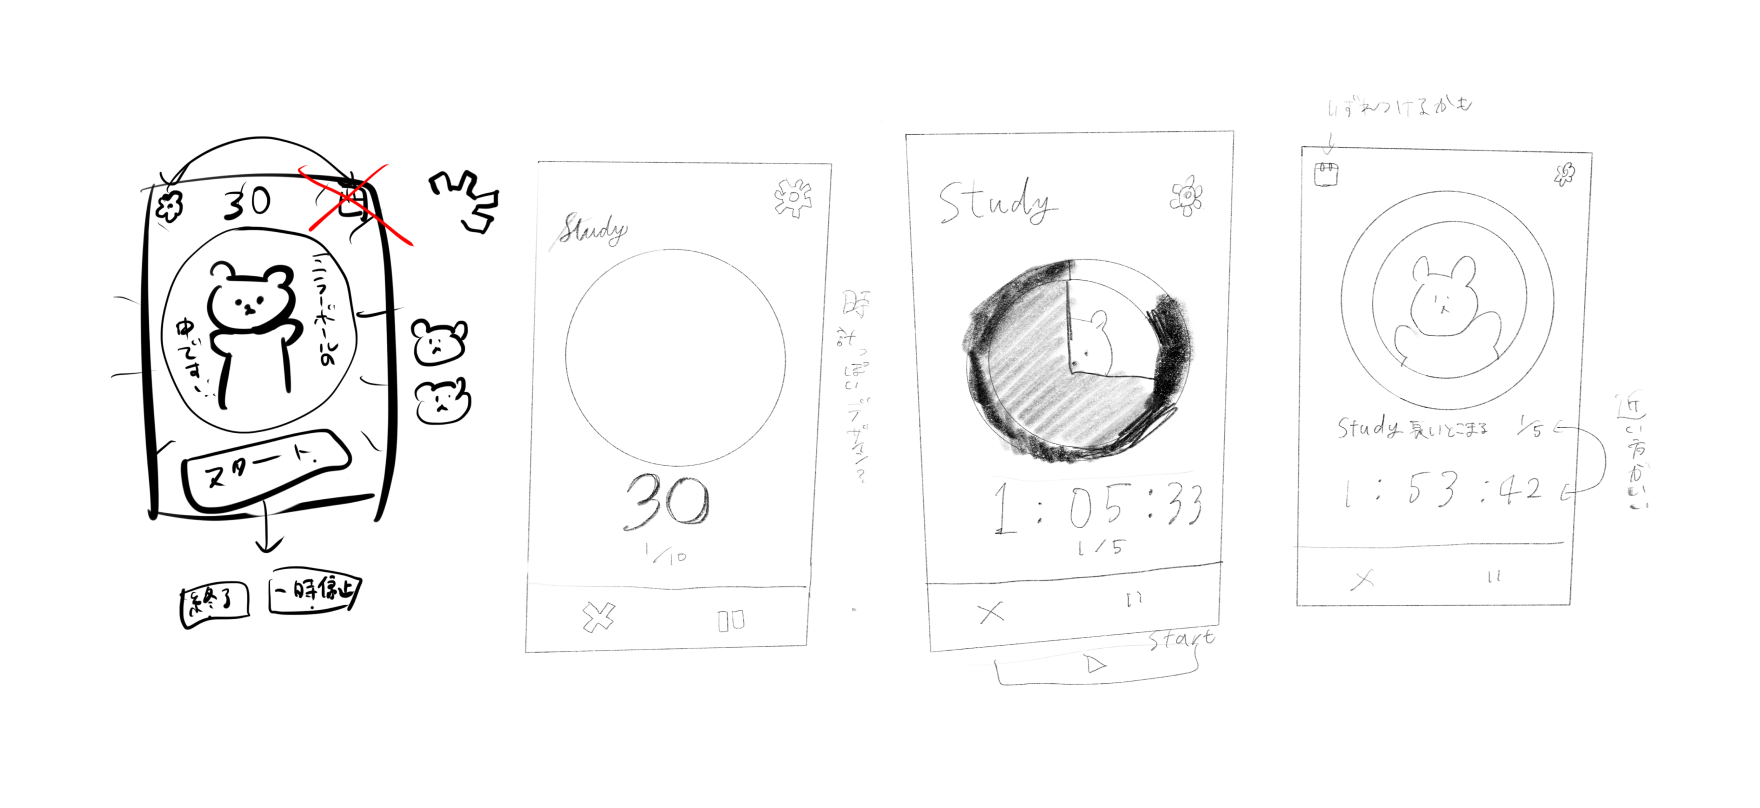 30
ミラーボールの
中です。
スタート
終了
一時停止
Study
30
1/10
時計っぽいデザイン?
Study
1:05:33
1/5
Start
いずれつけるかも
Study 長いとこまる 1/5
1:53:42
近い方がいい